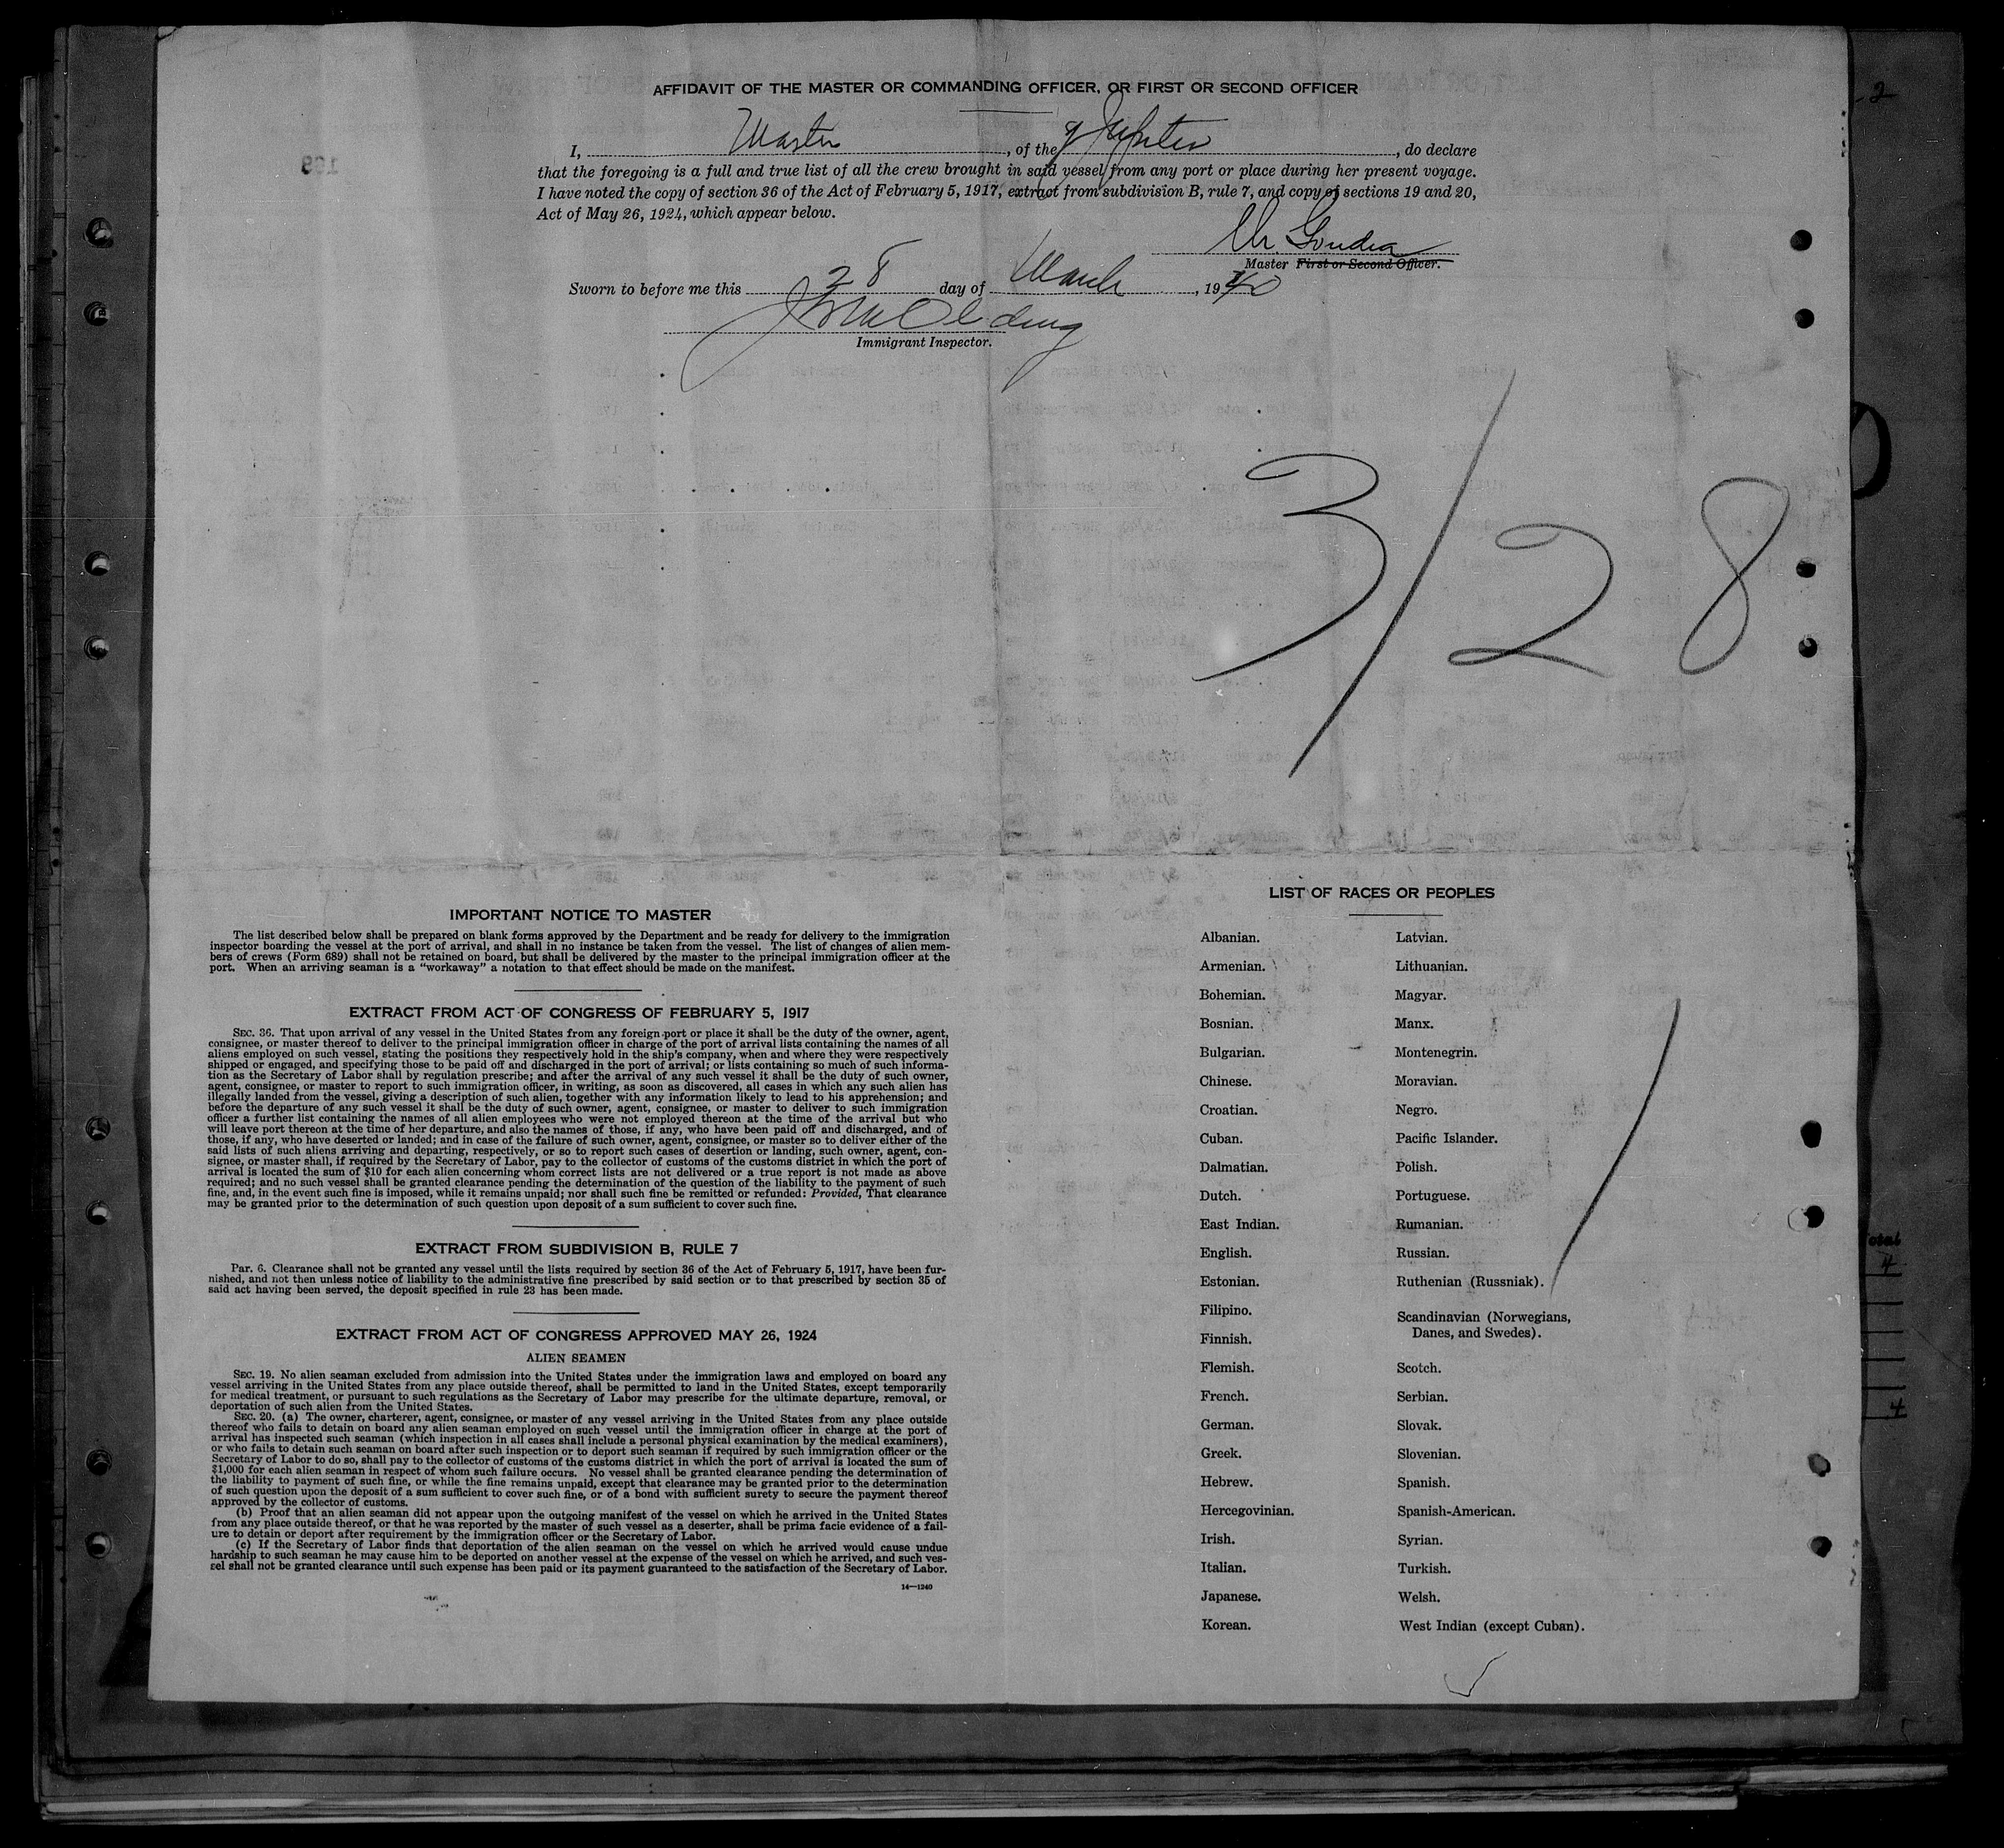 AFFIDAVIT OF THE MASTER OR COMMANDING OFFICER, OR FIRST OR SECOND OFFICER
I, Master, of the Jupiter, do declare
that the foregoing is a full and true list of all the crew brought in said vessel from any port or place during her present voyage.
I have noted the copy of section 36 of the Act of February 5, 1917, extract from subdivision B, rule 7, and copy of sections 19 and 20,
Act of May 26, 1924, which appear below.
Master First or Second Officer.
Sworn to before me this 28 day of March, 1940
Immigrant Inspector.
3/28
IMPORTANT NOTICE TO MASTER
The list described below shall be prepared on blank forms approved by the Department and be ready for delivery to the immigration
inspector boarding the vessel at the port of arrival, and shall in no instance be taken from the vessel. The list of changes of alien mem-
bers of crews (Form 689) shall not be retained on board, but shall be delivered by the master to the principal immigration officer at the
port. When an arriving seaman is a "workaway" a notation to that effect should be made on the manifest.
EXTRACT FROM ACT OF CONGRESS OF FEBRUARY 5, 1917
SEC. 36. That upon arrival of any vessel in the United States from any foreign port or place it shall be the duty of the owner, agent,
consignee, or master thereof to deliver to the principal immigration officer in charge of the port of arrival lists containing the names of all
aliens employed on such vessel, stating the positions they respectively hold in the ship's company, when and where they were respectively
shipped or engaged, and specifying those to be paid off and discharged in the port of arrival; or lists containing so much of such informa-
tion as the Secretary of Labor shall by regulation prescribe; and after the arrival of any such vessel it shall be the duty of such owner,
agent, consignee, or master to report to such immigration officer, in writing, as soon as discovered, all cases in which any such alien has
illegally landed from the vessel, giving a description of such alien, together with any information likely to lead to his apprehension; and
before the departure of any such vessel it shall be the duty of such owner, agent, consignee, or master to deliver to such immigration
officer a further list containing the names of all alien employees who were not employed thereon at the time of the arrival but who
will leave port thereon at the time of her departure, and also the names of those, if any, who have been paid off and discharged, and of
those, if any, who have deserted or landed; and in case of the failure of such owner, agent, consignee, or master so to deliver either of the
said lists of such aliens arriving and departing, respectively, or so to report such cases of desertion or landing, such owner, agent, con-
signee, or master shall, if required by the Secretary of Labor, pay to the collector of customs of the customs district in which the port of
arrival is located the sum of $10 for each alien concerning whom correct lists are not delivered or a true report is not made as above
required; and no such vessel shall be granted clearance pending the determination of the question of the liability to the payment of such
fine, and, in the event such fine is imposed, while it remains unpaid; nor shall such fine be remitted or refunded: Provided, That clearance
may be granted prior to the determination of such question upon deposit of a sum sufficient to cover such fine.
EXTRACT FROM SUBDIVISION B, RULE 7
Par. 6. Clearance shall not be granted any vessel until the lists required by section 36 of the Act of February 5, 1917, have been fur-
nished, and not then unless notice of liability to the administrative fine prescribed by said section or to that prescribed by section 35 of
said act having been served, the deposit specified in rule 23 has been made.
EXTRACT FROM ACT OF CONGRESS APPROVED MAY 26, 1924
ALIEN SEAMEN
SEC. 19. No alien seaman excluded from admission into the United States under the immigration laws and employed on board any
vessel arriving in the United States from any place outside thereof, shall be permitted to land in the United States, except temporarily
for medical treatment, or pursuant to such regulations as the Secretary of Labor may prescribe for the ultimate departure, removal, or
deportation of such alien from the United States.
SEC. 20. (a) The owner, charterer, agent, consignee, or master of any vessel arriving in the United States from any place outside
thereof who fails to detain on board any alien seaman employed on such vessel until the immigration officer in charge at the port of
arrival has inspected such seaman (which inspection in all cases shall include a personal physical examination by the medical examiners),
or who fails to detain such seaman on board after such inspection or to deport such seaman if required by such immigration officer or the
Secretary of Labor to do so, shall pay to the collector of customs of the customs district in which the port of arrival is located the sum of
$1,000 for each alien seaman in respect of whom such failure occurs. No vessel shall be granted clearance pending the determination of
the liability to payment of such fine, or while the fine remains unpaid, except that clearance may be granted prior to the determination
of such question upon the deposit of a sum sufficient to cover such fine, or of a bond with sufficient surety to secure the payment thereof
approved by the collector of customs.
(b) Proof that an alien seaman did not appear upon the outgoing manifest of the vessel on which he arrived in the United States
from any place outside thereof, or that he was reported by the master of such vessel as a deserter, shall be prima facie evidence of a fail-
ure to detain or deport after requirement by the immigration officer or the Secretary of Labor.
(c) If the Secretary of Labor finds that deportation of the alien seaman on the vessel on which he arrived would cause undue
hardship to such seaman he may cause him to be deported on another vessel at the expense of the vessel on which he arrived, and such ves-
sel shall not be granted clearance until such expense has been paid or its payment guaranteed to the satisfaction of the Secretary of Labor.
14—1240
LIST OF RACES OR PEOPLES
Albanian.
Armenian.
Bohemian.
Bosnian.
Bulgarian.
Chinese.
Croatian.
Cuban.
Dalmatian.
Dutch.
East Indian.
English.
Estonian.
Filipino.
Finnish.
Flemish.
French.
German.
Greek.
Hebrew.
Hercegovinian.
Irish.
Italian.
Japanese.
Korean.
Latvian.
Lithuanian.
Magyar.
Manx.
Montenegrin.
Moravian.
Negro.
Pacific Islander.
Polish.
Portuguese.
Rumanian.
Russian.
Ruthenian (Russniak).
Scandinavian (Norwegians,
Danes, and Swedes).
Scotch.
Serbian.
Slovak.
Slovenian.
Spanish.
Spanish-American.
Syrian.
Turkish.
Welsh.
West Indian (except Cuban).